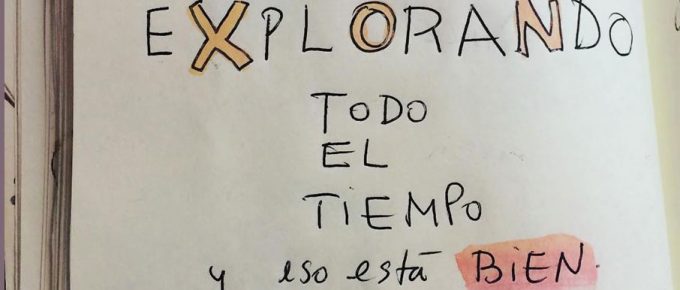 EXPLORANDO
TODO
EL
TiEMPO
y eso está BiEN.